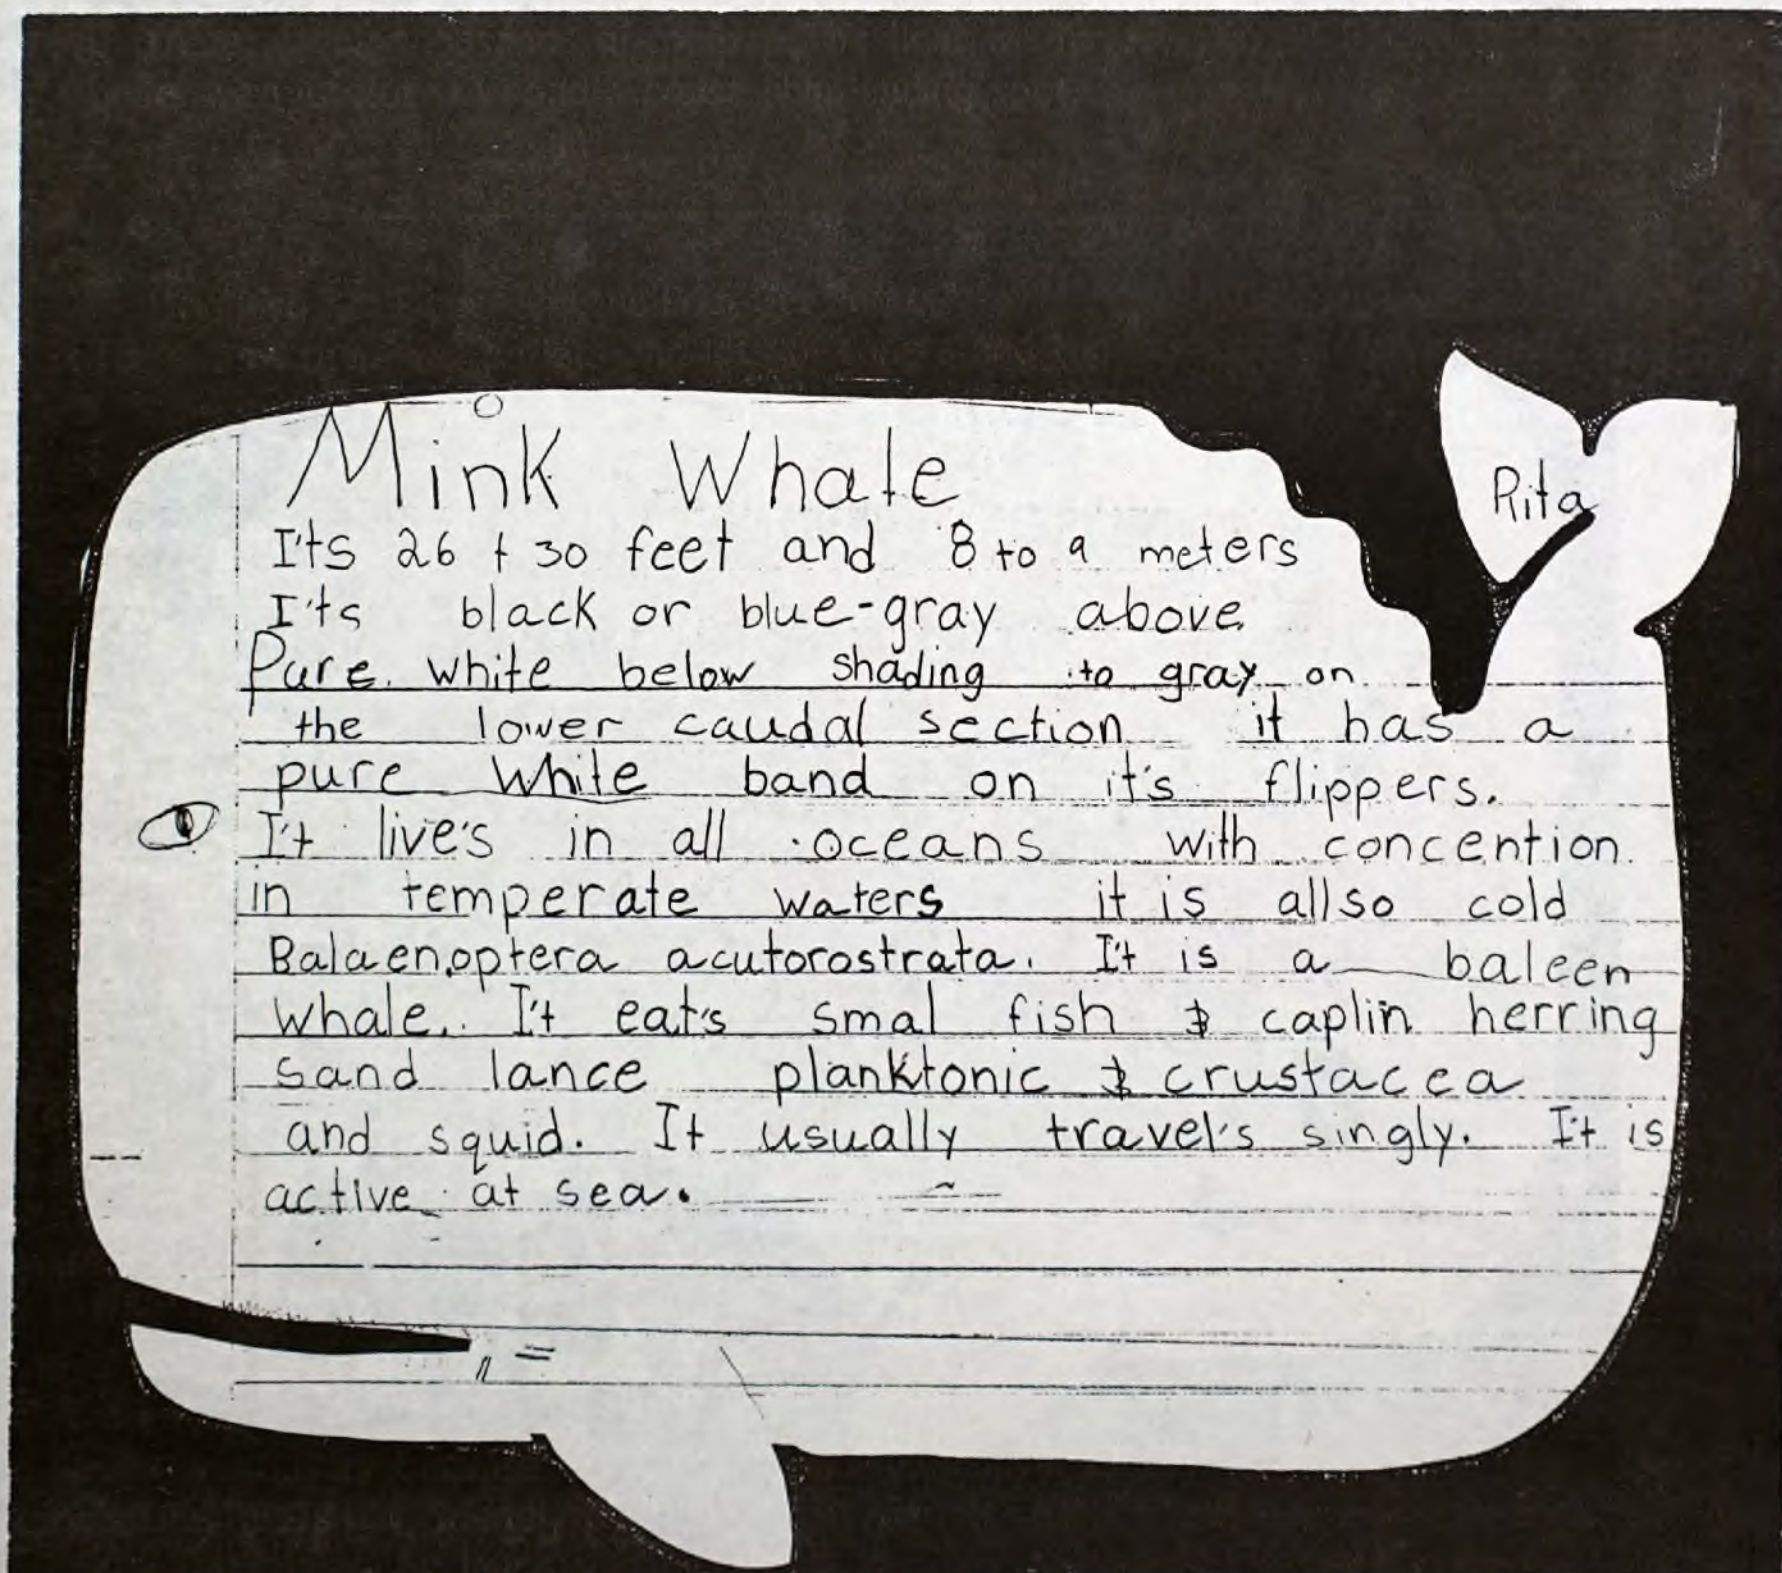 Mink Whale
Rita
I'ts 26 t 30 feet and 8 to 9 meters
I'ts black or blue-gray above.
Pure white below shading to gray on
the lower caudal section it has a
pure white band on it's flippers.
I't live's in all oceans with concention
in temperate waters it is allso cold
Balaenoptera acutorostrata. I't is a baleen
whale. I't eat's smal fish & caplin herring
sand lance planktonic & crustacea
and squid. It usually travel's singly. I't is
active at sea.